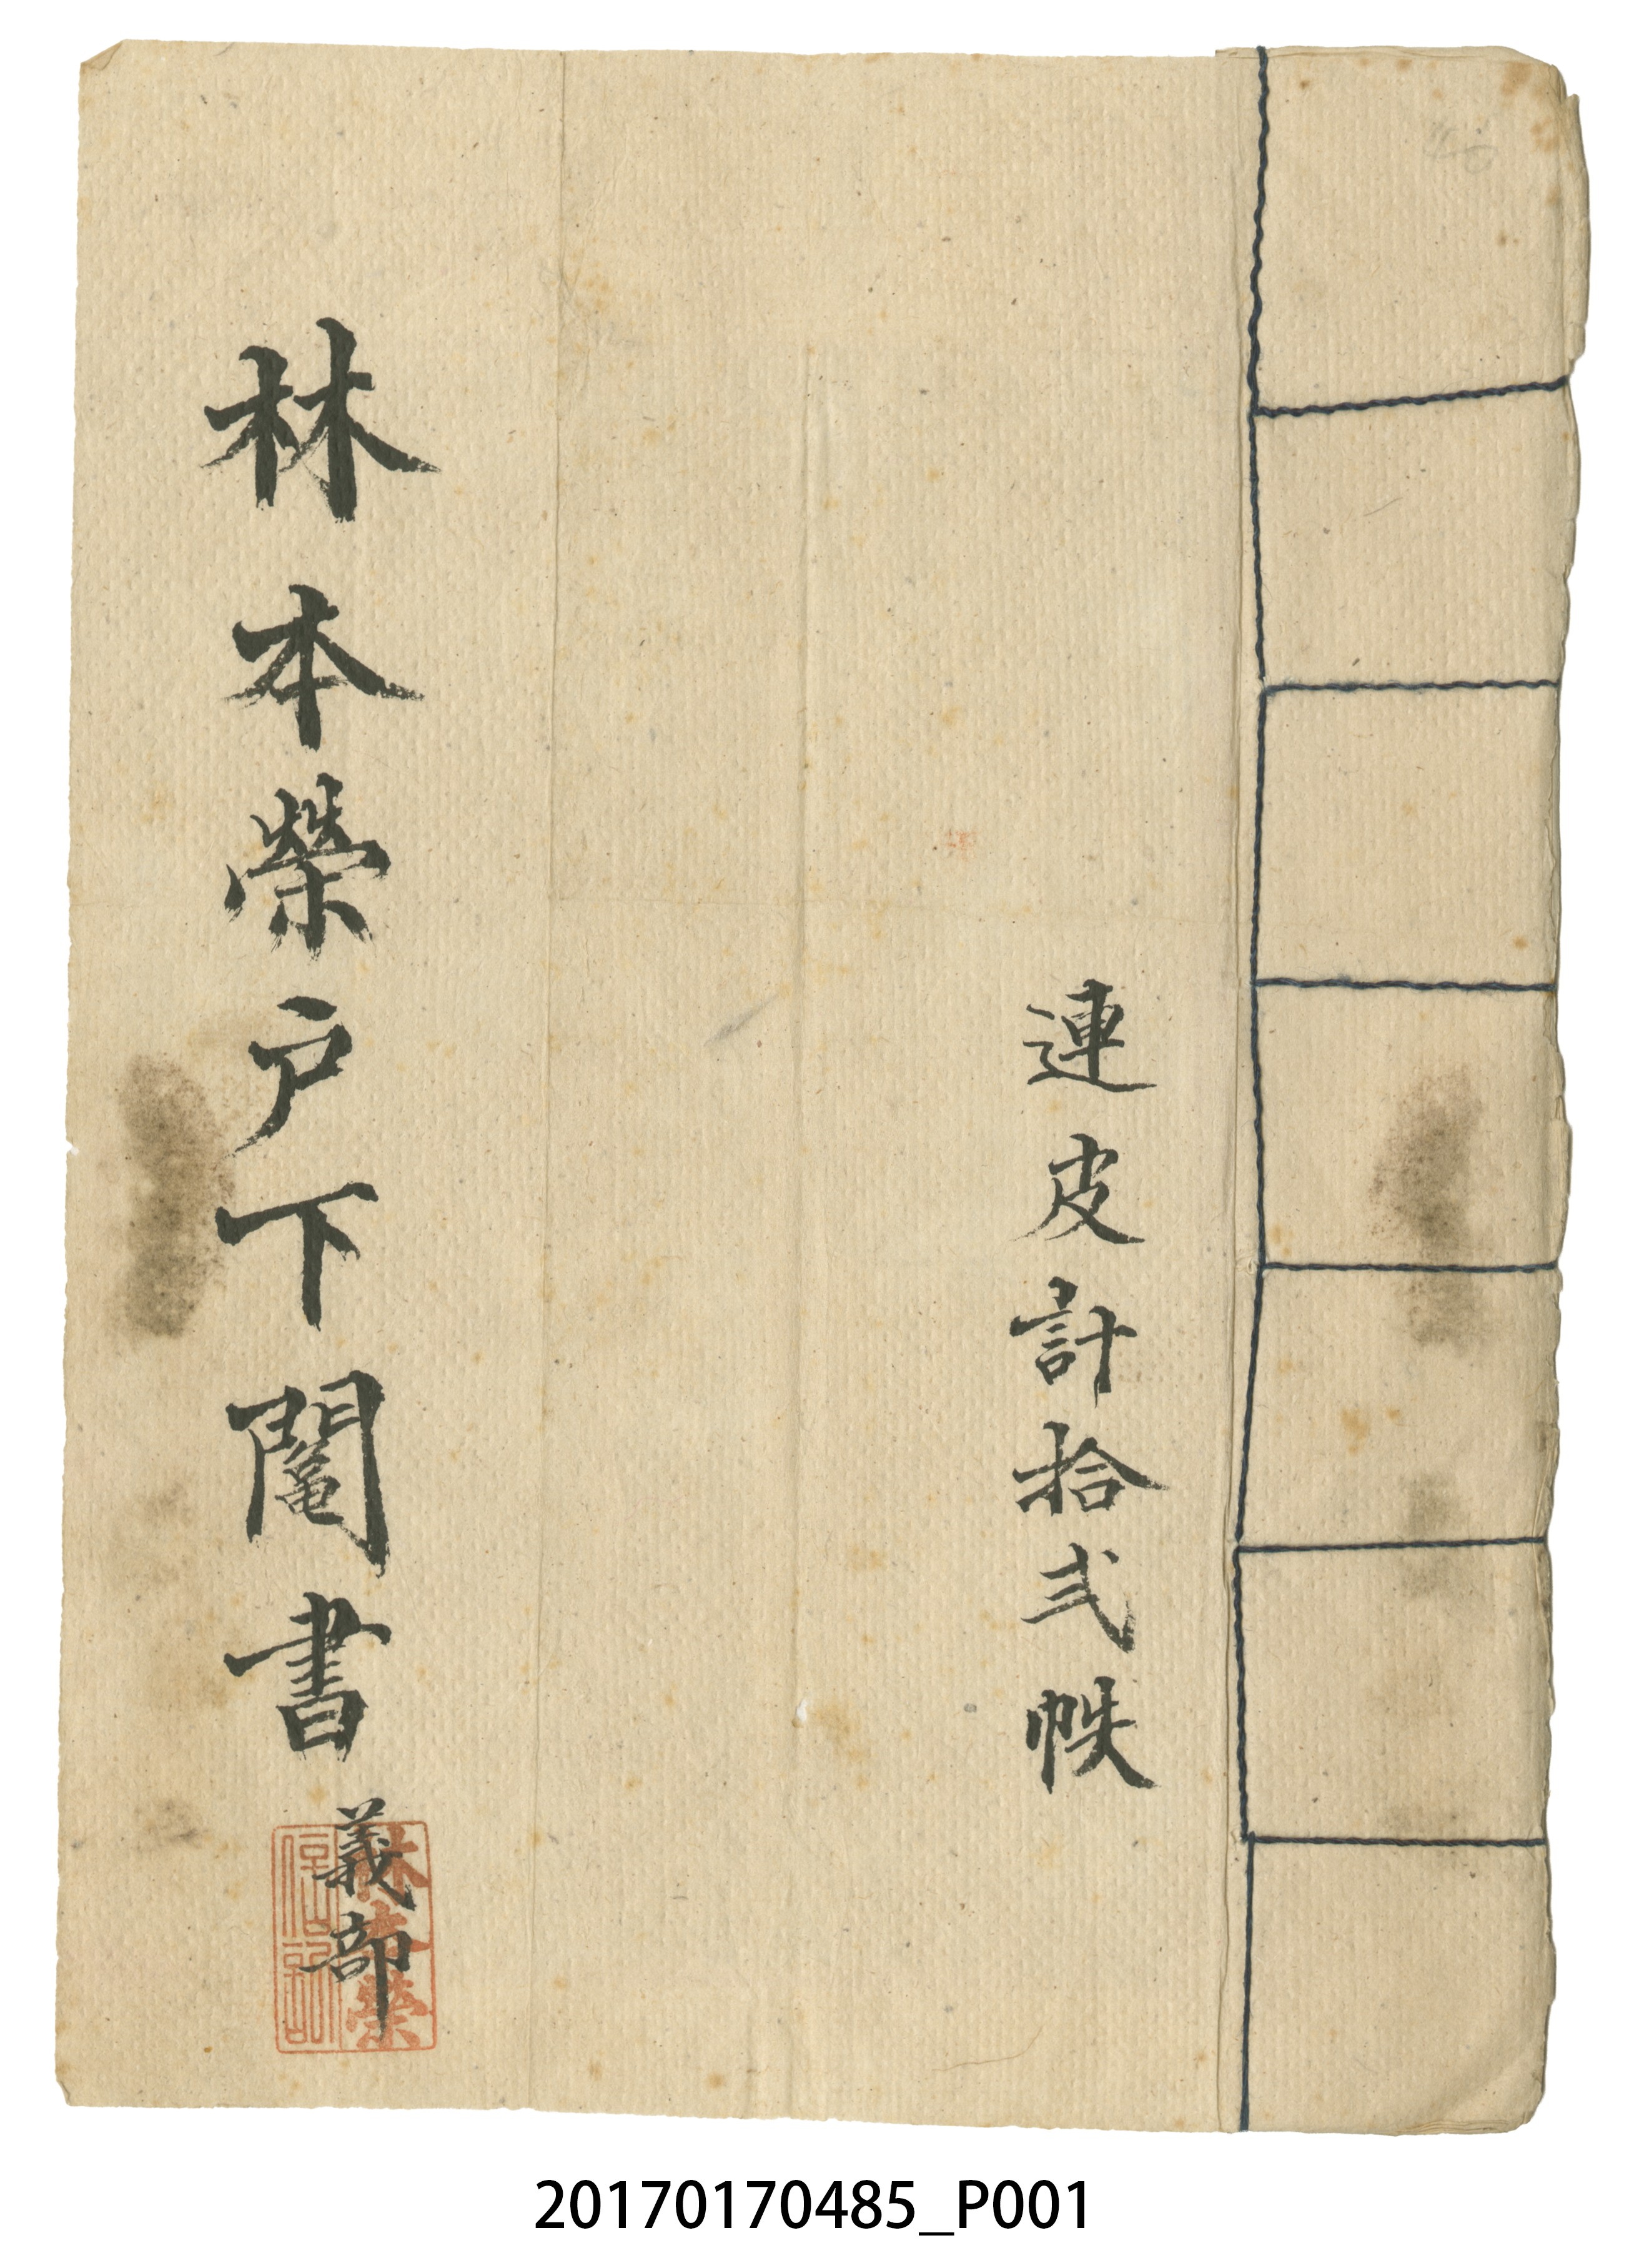 連皮計拾弍帙
林本榮戶下鬮書
義部
林本榮
信記
20170170485_P001